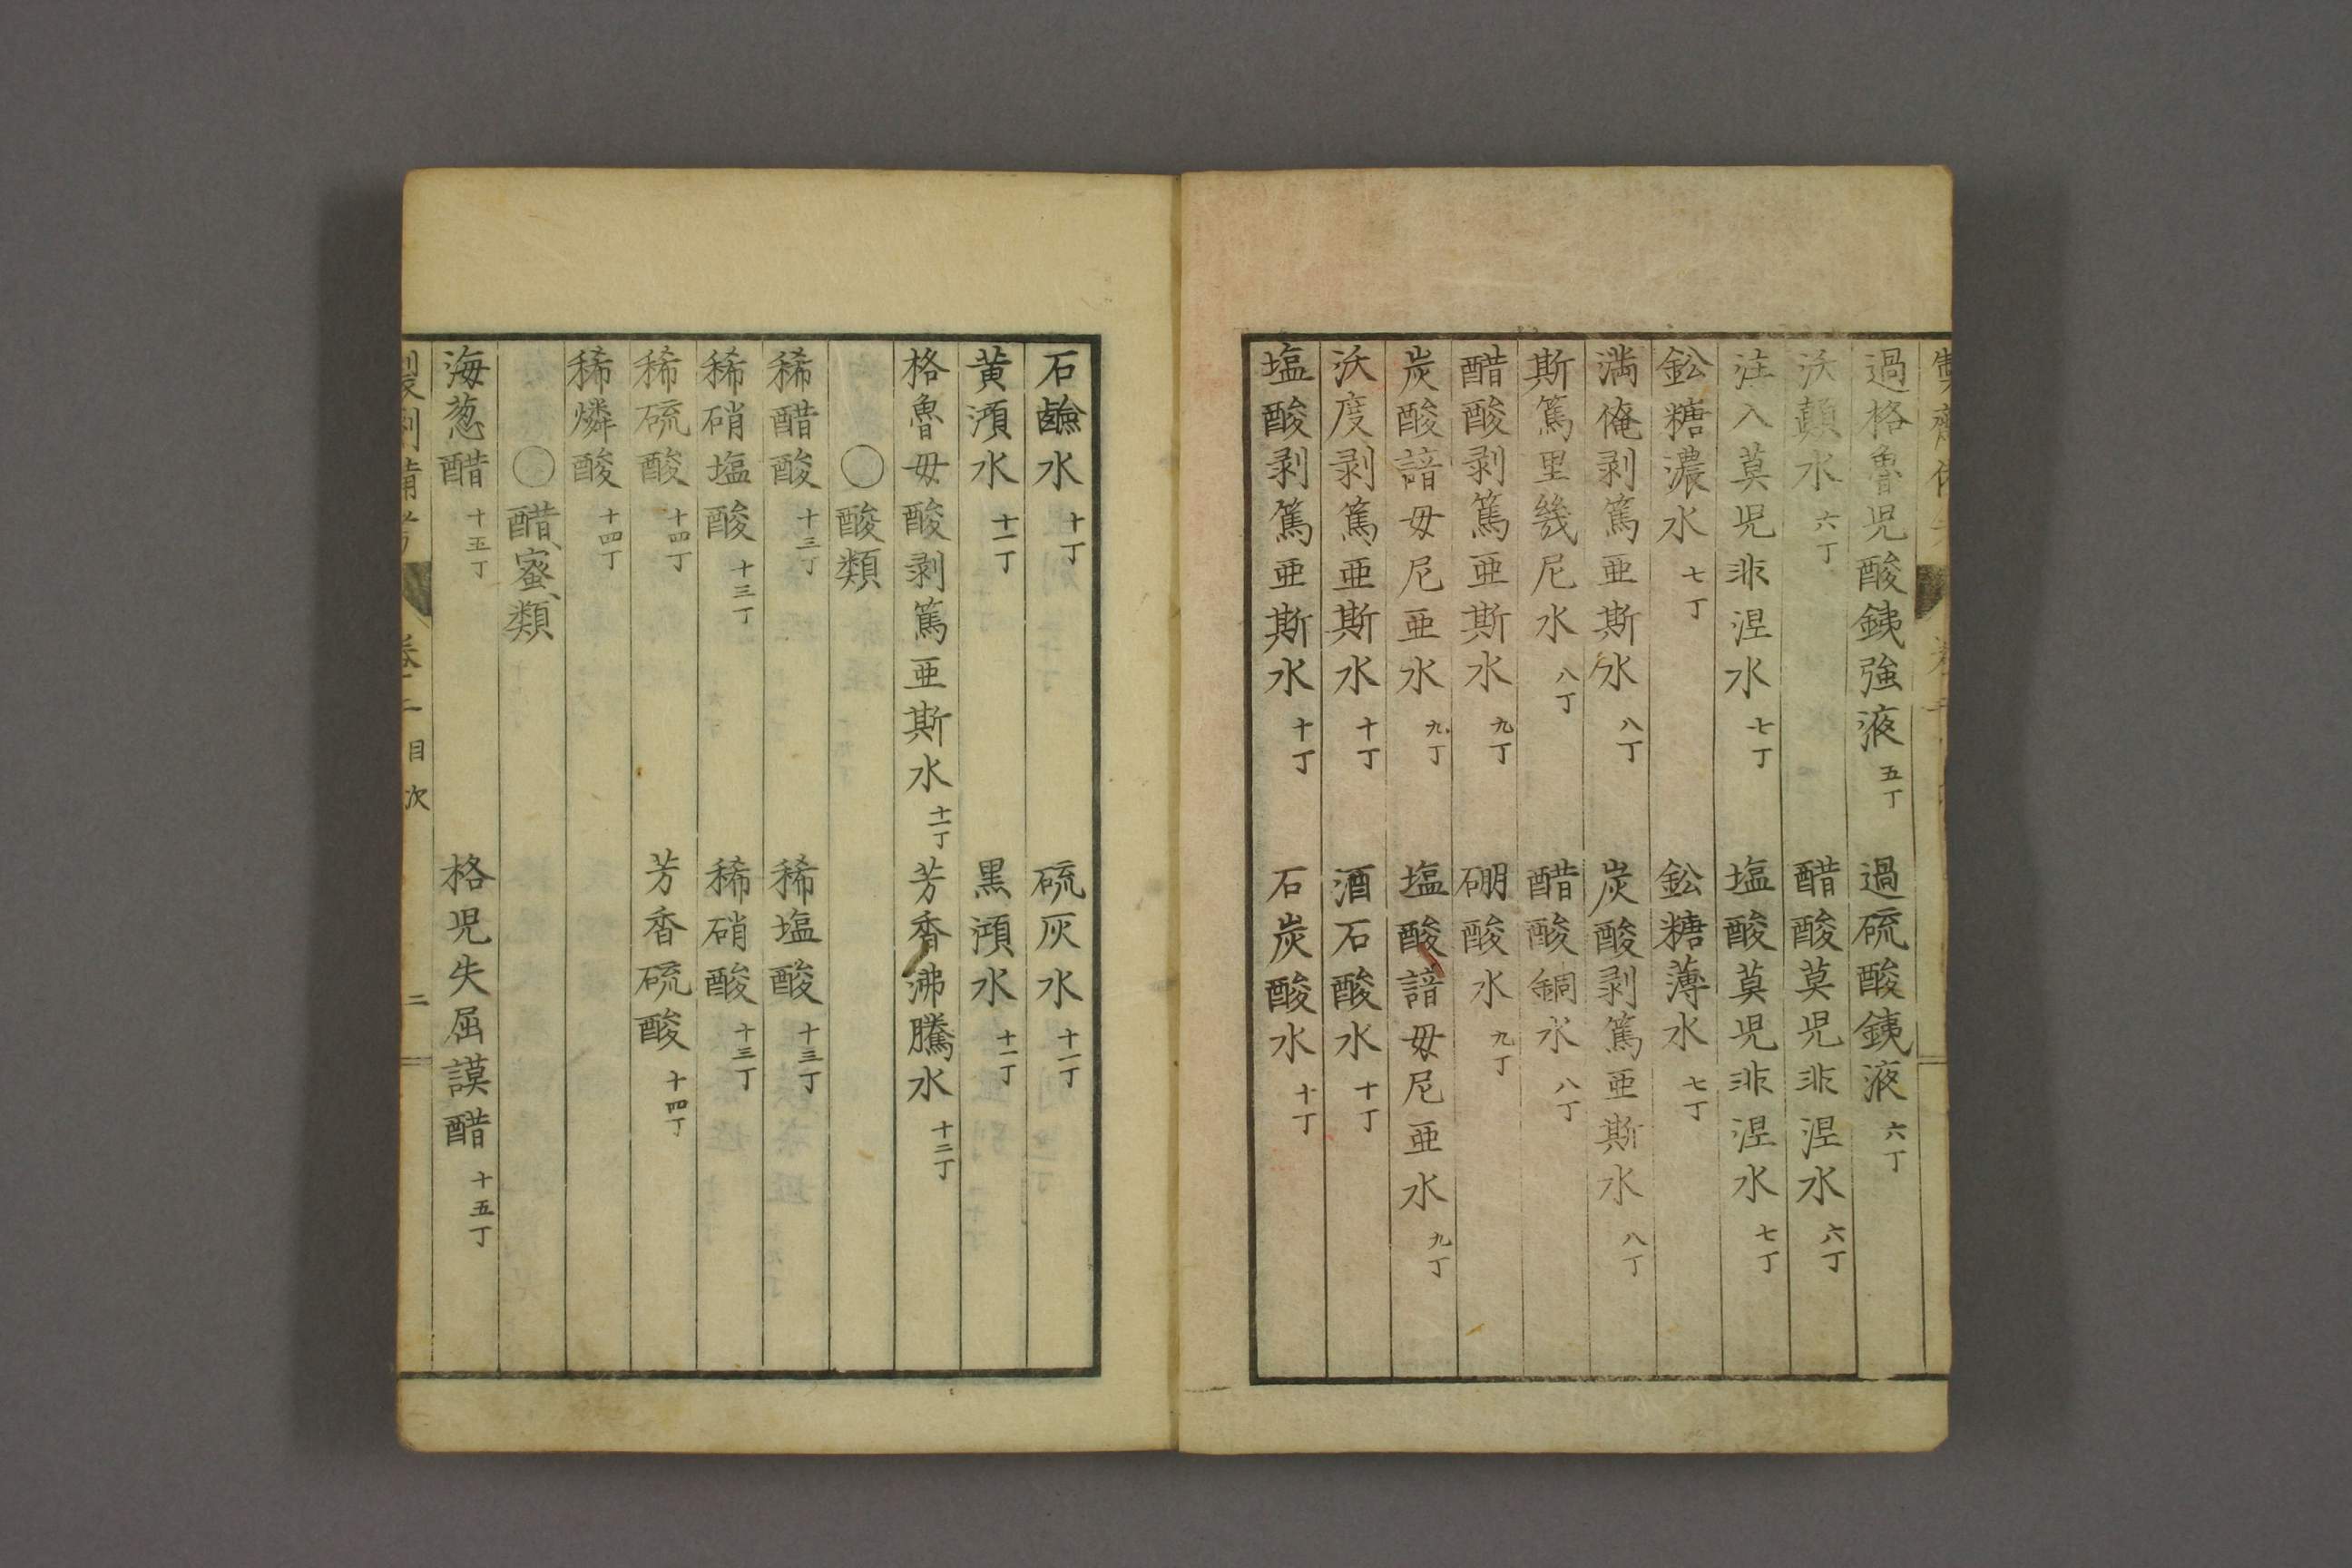 過格魯児酸銕強液 五丁 過硫酸銕液 六丁
沃顛水 六丁 醋酸莫児非涅水 六丁
注入莫児非涅水 七丁 塩酸莫児非涅水 七丁
鉛糖濃水 七丁 鉛糖薄水 七丁
満俺剥篤亜斯水 八丁 炭酸剥篤亜斯水 八丁
斯篤里幾尼水 八丁 醋酸銅水 八丁
醋酸剥篤亜斯水 九丁 硼酸水 九丁
炭酸諳毋尼亜水 九丁 塩酸諳毋尼亜水 九丁
沃度剥篤亜斯水 十丁 酒石酸水 十丁
塩酸剥篤亜斯水 十丁 石炭酸水 十丁
石鹼水 十丁 硫灰水 十一丁
黄澒水 十一丁 黒澒水 十一丁
格魯毋酸剥篤亜斯水 十一丁 芳香沸騰水 十二丁
○酸類
稀醋酸 十三丁 稀塩酸 十三丁
稀硝塩酸 十三丁 稀硝酸 十三丁
稀硫酸 十四丁 芳香硫酸 十四丁
稀燐酸 十四丁
○醋、蜜、類
海葱醋 十五丁 格児失屈謨醋 十五丁
目次 二